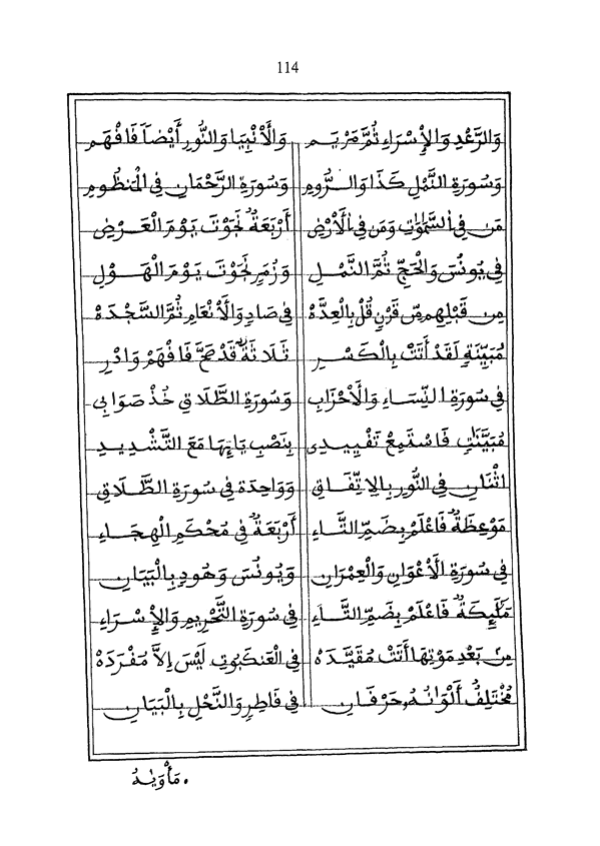 114
وَالرَّعْدِ وَالْإِسْرَاءِ ثُمَّ مَرْيَمِ وَالْأَنْبِيَا وَالنُّورِ أَيْضاً فَافْهَمِ
وَسُورَةِ النَّمْلِ كَذَا وَالرُّومِ وَسُورَةِ الرَّحْمَانِ فِي الْمَنْظُومِ
مَن فِي السَّمَٰوَٰتِ وَمَن فِي الْأَرْضِ أَرْبَعَةٌ نَجَوْتَ يَوْمَ الْعَرْضِ
فِي يُونُسَ وَالْحَجِّ ثُمَّ النَّمْلِ وَزُمَرٍ نَجَوْتَ يَوْمَ الْهَوْلِ
مِن قَبْلِهِم مِّن قَرْنٍ قُلْ بِالْعِدَّهْ فِي صَادِ وَالْأَنْعَامِ ثُمَّ السَّجْدَهْ
مُبَيِّنَةٍ لَقَدْ أَتَتْ بِالْكَسْرِ ثَلَاثَةٌ قَدْ صَحَّ فَافْهَمْ وَادْرِ
فِي سُورَةِ النِّسَاءِ وَالْأَحْزَابِ وَسُورَةِ الطَّلَاقِ خُذْ صَوَابِي
مُبَيَّنَٰتٍ فَاسْتَمِعْ تَقْيِيدِي بِنَصْبِ يَائِهَا مَعَ التَّشْدِيدِ
اثْنَانِ فِي النُّورِ بِالِاتِّفَاقِ وَوَاحِدَة فِي سُورَةِ الطَّلَاقِ
مَوْعِظَةٌ فَاعْلَمْ بِضَمِّ التَّاءِ أَرْبَعَةٌ فِي مُحْكَمِ الْهِجَاءِ
فِي سُورَةِ الْأَعْوَانِ وَالْعِمْرَانِ وَيُونُسَ وَهُودِ بِالْبَيَانِ
مَلَٰئِكَةٌ فَاعْلَمْ بِضَمِّ التَّاءِ فِي سُورَةِ التَّحْرِيمِ وَالْإِسْرَاءِ
مِن بَعْدِ مَوْتِهَا أَتَتْ مُقَيَّدَهْ فِي الْعَنكَبُوتِ لَيْسَ إِلاَّ مُفْرَدَهْ
مُّخْتَلِفٌ أَلْوَانُهُ حَرْفَانِ فِي فَاطِرٍ وَالنَّحْلِ بِالْبَيَانِ
. مَأْوَيٰهُ